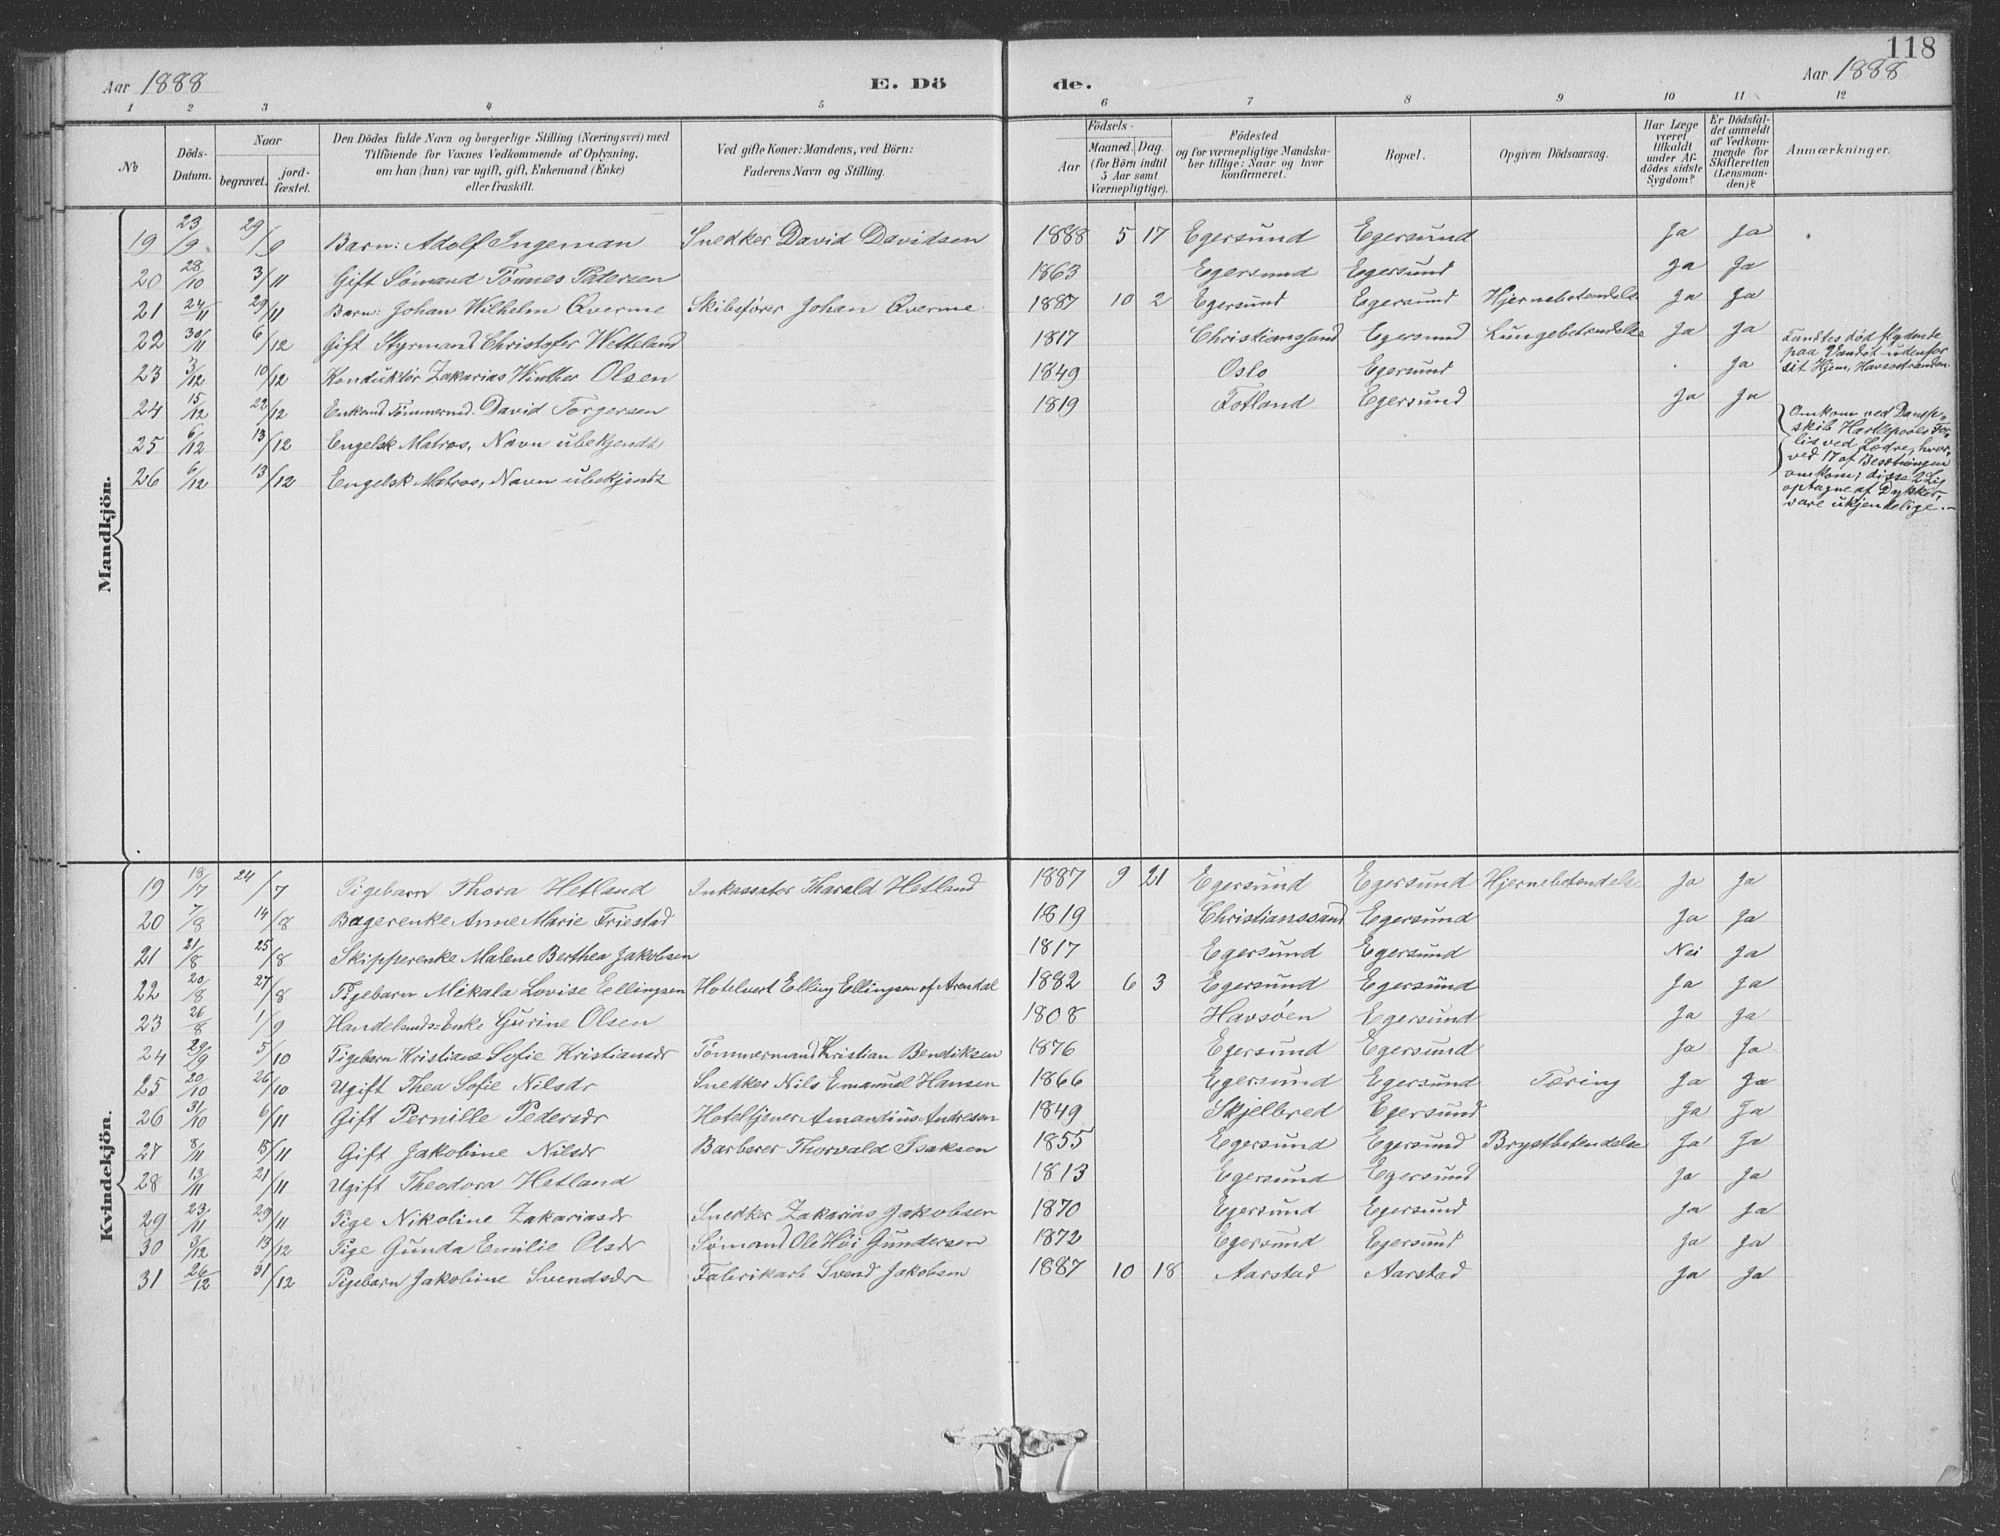 118
Aar 1888 E. Dö de. Aar 1888
1 2 3 4 5 6 7 8 9 10 11 12
No Döds-Datum. Naar begravet. jordfæstet. Den Dödes fulde Navn og borgerlige Stilling (Næringsvei) med Tilföiende for Voxnes Vedkommende af Oplysning, om han (hun) var ugift, gift, Enkemand (Enke) eller fraskilt. Ved gifte Koner: Mandens, ved Börn: Faderens Navn og Stilling. Födsels- Aar Maaned. Dag. (for Börn indtil 5 Aar samt Værnepligtige). Födested og for værnepligtige Mandskaber tillige: Naar og hvor konfirmeret. Bopæl. Opgiven Dödsaarsag. Har Læge været tilkaldt under Afdödes sidste Sygdom? Er Dödsfaldet anmeldt af Vedkommende for Skifteretten (Lensmanden)? Anmærkninger.
Mandkjön.
19 23/9 29/9 Barn: Adolf Ingeman Snedker David Davidsen 1888 5 17 Egersund Egersund Ja Ja
20 28/10 3/11 Gift Sömand Tönnes Petersen 1863 Egersund Egersund Ja Ja
21 24/11 29/11 Barn: Johan Wilhelm Qverme Skibsförer Johan Qverme 1887 10 2 Egersund Egersund Hjernebetendelse Ja Ja
22 30/11 6/12 Gift Styrmand Christofer Wetteland 1817 Christianssand Egersund Lungebetendelse Ja Ja
23 3/12 10/12 Konduktör Zakarias Winther Olsen 1849 Oslo Egersund Ja Fandtes död flydende paa Vandet udenfor sit Hjem, Havsöstranden
24 15/12 22/12 Enkemd Tömmermd. David Torgersen 1819 Fotland Egersund Ja Ja
25 6/12 13/12 Engelsk Matros, Navn ubekjendt
26 6/12 13/12 Engelsk Matros, Navn ubekjendt
Omkom ved Dampskib Hartlepools Forlis ved Lædre, hvorved 17 af Besætningen omkom; disse 2 Lig optagne af Dykker, vare ukjendelige.
Kvindekjön.
19 18/7 24/7 Pigebarn Thora Hetland Inkassator Tharald Hetland 1887 9 21 Egersund Egersund Hjernebetendelse Ja Ja
20 7/8 14/8 Bagerenke Anne Marie Friestad 1819 Christianssand Egersund Ja Ja
21 21/8 25/8 Skipperenke Malene Berthea Jakobsen 1817 Egersund Egersund Nei Ja
22 20/8 27/8 Pigebarn Mikala Lovise Ellingsen Hotelvert Elling Ellingsen af Arendal 1882 6 3 Egersund Egersund Ja Ja
23 26/8 1/9 Handelsmds=Enke Gurine Olsen 1808 Havsöen Egersund Ja Ja
24 29/9 5/10 Pigebarn Kristiane Sofie Kristiansdr Tömmermand Kristian Bendiksen 1876 Egersund Egersund Ja Ja
25 20/10 26/10 Ugift Thea Sofie Nilsdr Snedker Nils Emanuel Hansen 1866 Egersund Egersund Tæring Ja Ja
26 31/10 6/11 Gift Pernille Pedersdr Hoteltjener Amandius Andresen 1849 Skjelbred Egersund Ja Ja
27 8/11 15/11 Gift Jakobine Nilsdr Barberer Thorvald Isaksen 1855 Egersund Egersund Brystbetendelse Ja Ja
28 13/11 21/11 Ugift Theodora Hetland 1813 Egersund Egersund Ja Ja
29 23/11 29/11 Pige Nikoline Zakariasdr Snedker Zakarias Jakobsen 1870 Egersund Egersund Ja Ja
30 3/12 13/12 Pige Gunda Emilie Olsdr Sömand Ole Höi Gundersen 1872 Egersund Egersund Ja Ja
31 26/12 31/12 Pigebarn Jakobine Svendsdr Fabrikarb Svend Jakobsen 1887 10 18 Aarstad Aarstad Ja Ja